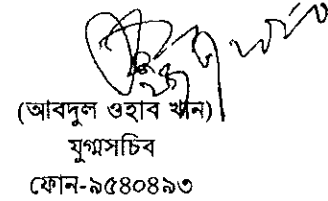 (আবদুল ওহাব খান)
যুগ্মসচিব
ফোন-৯৫৪০৪৯৩